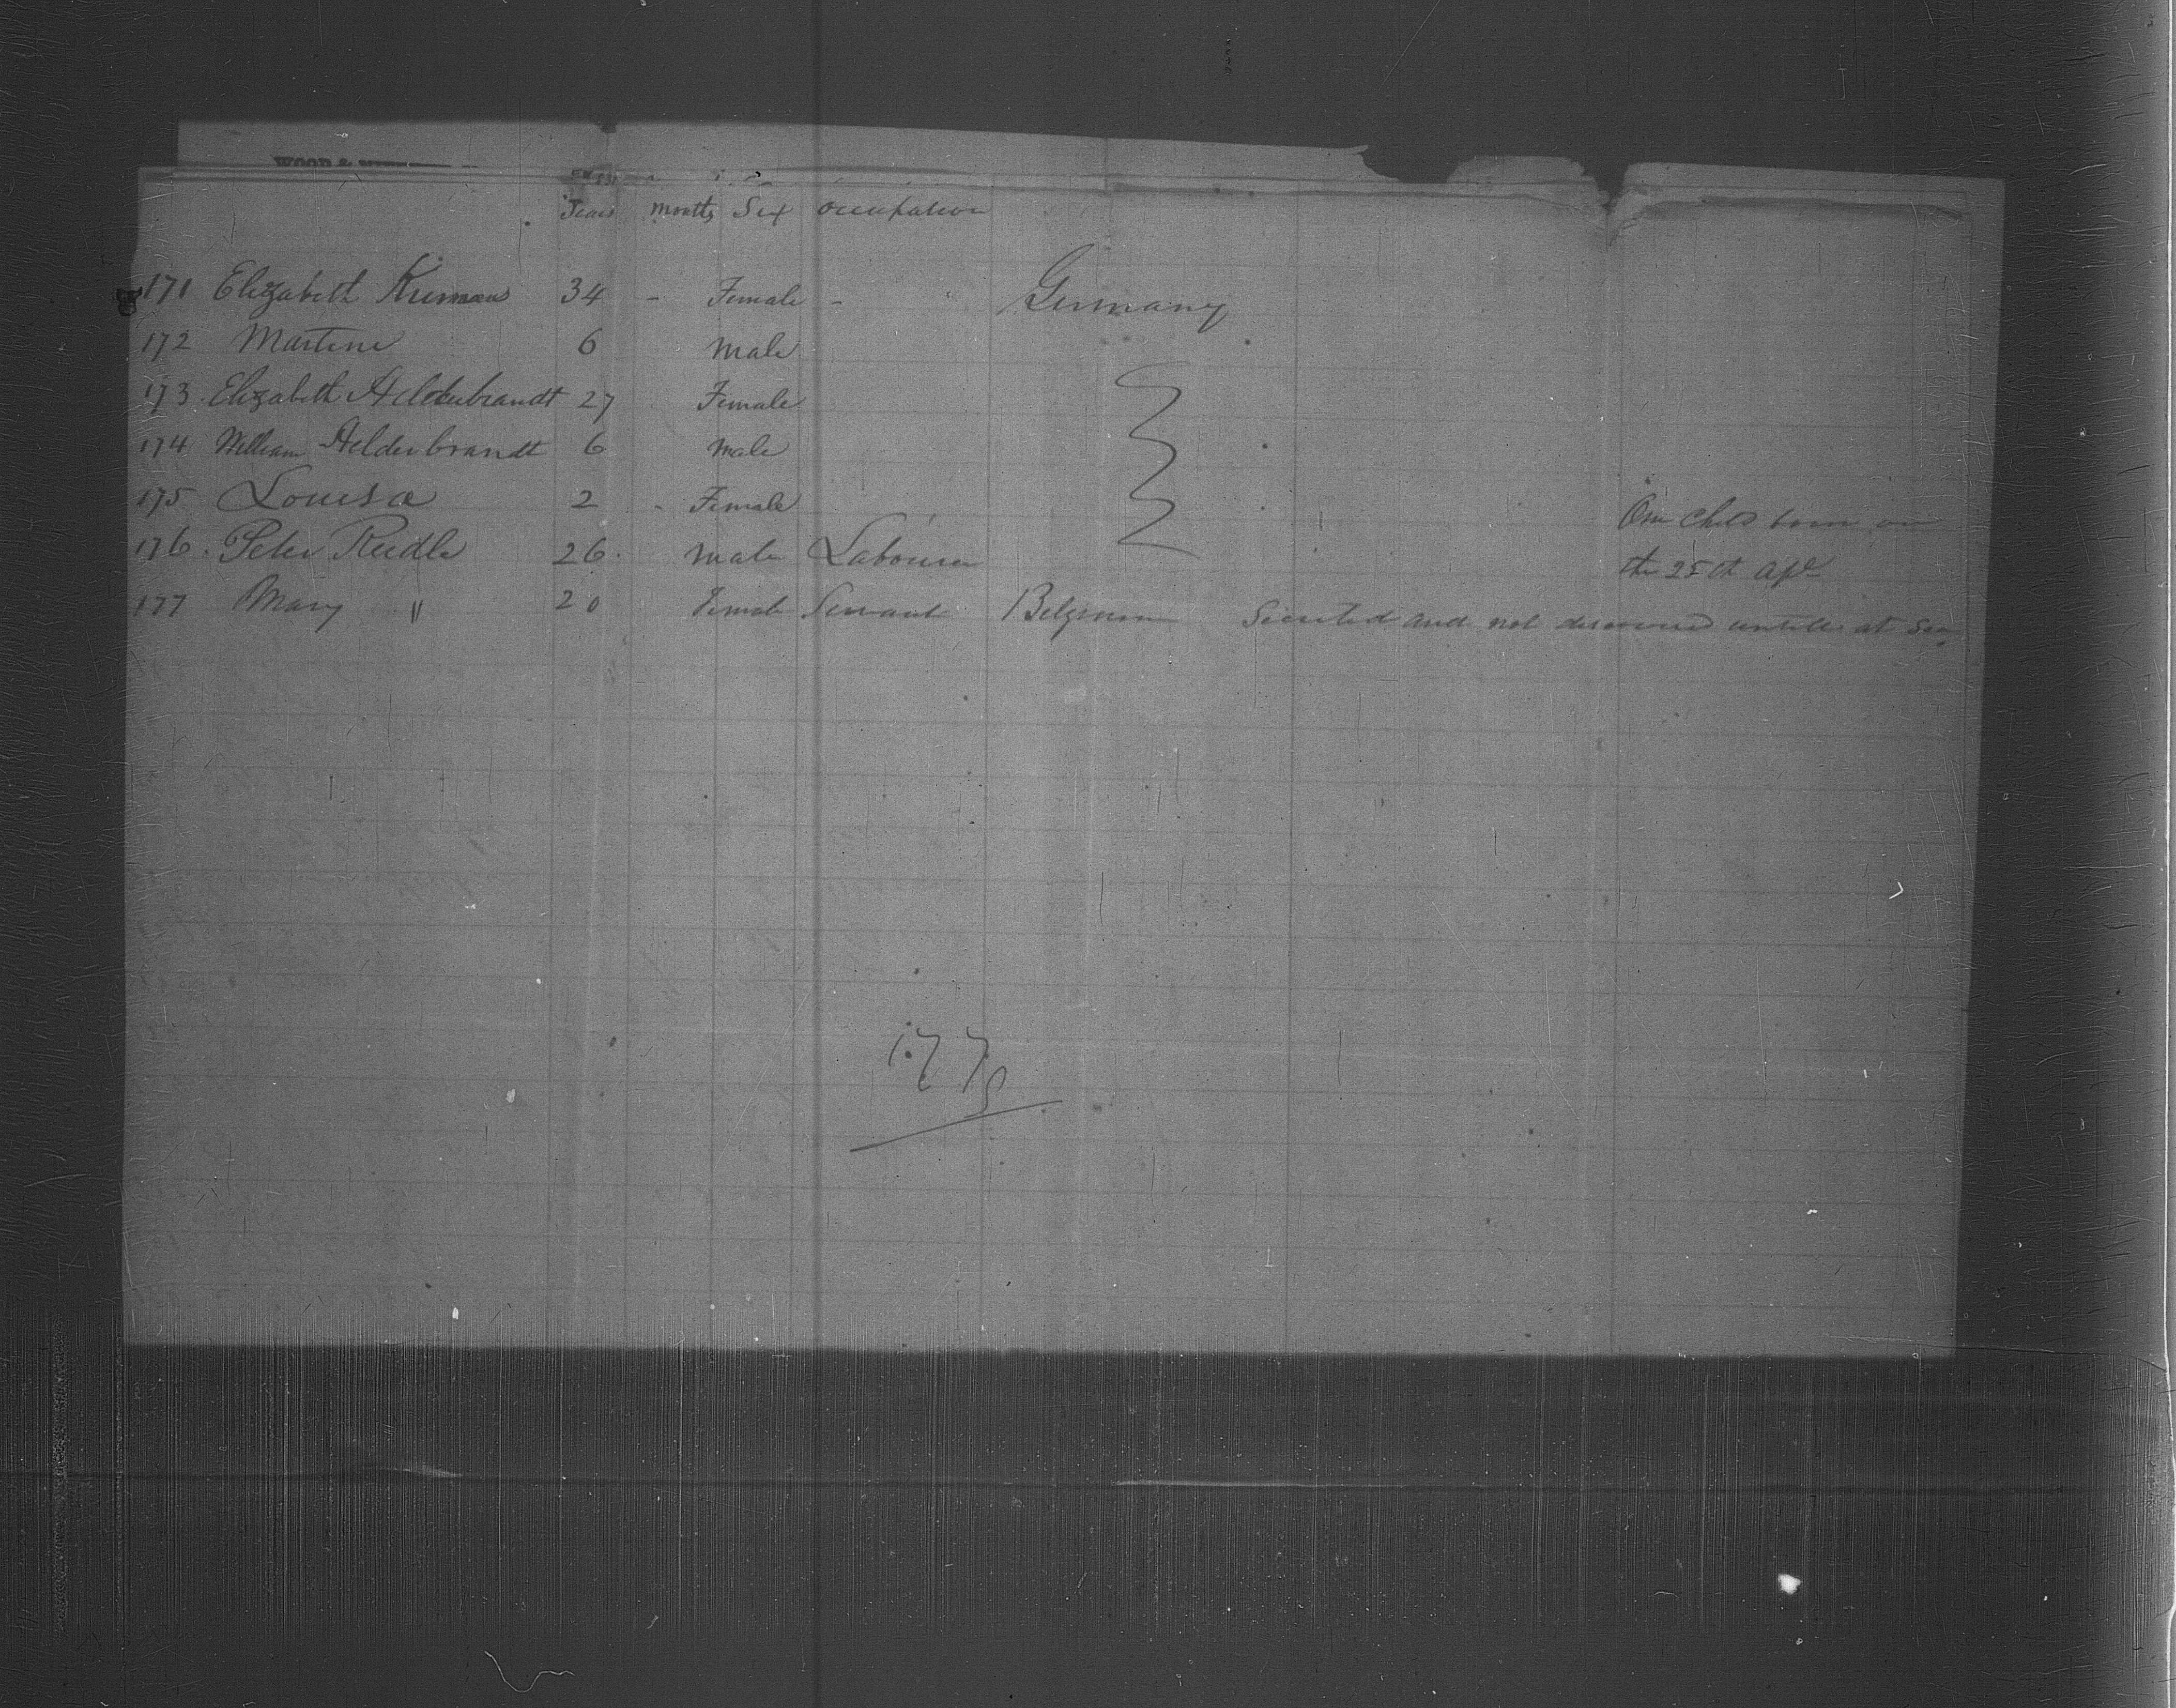 WOOD &
Years Months Sex occupation
171 Elizabeth Kuman 34 - Female - Germany
172 Martine 6 male
173. Elizabeth Helderbrandt 27 Female
174 William Helderbrandt 6 male
175 Louisa 2 - Female
One child born on
176. Peter Reidle 26. male Labourer
the 25th Apl
177 Mary " 20 Female Servant Belgium Secreted and not discovered untill at Sea
177